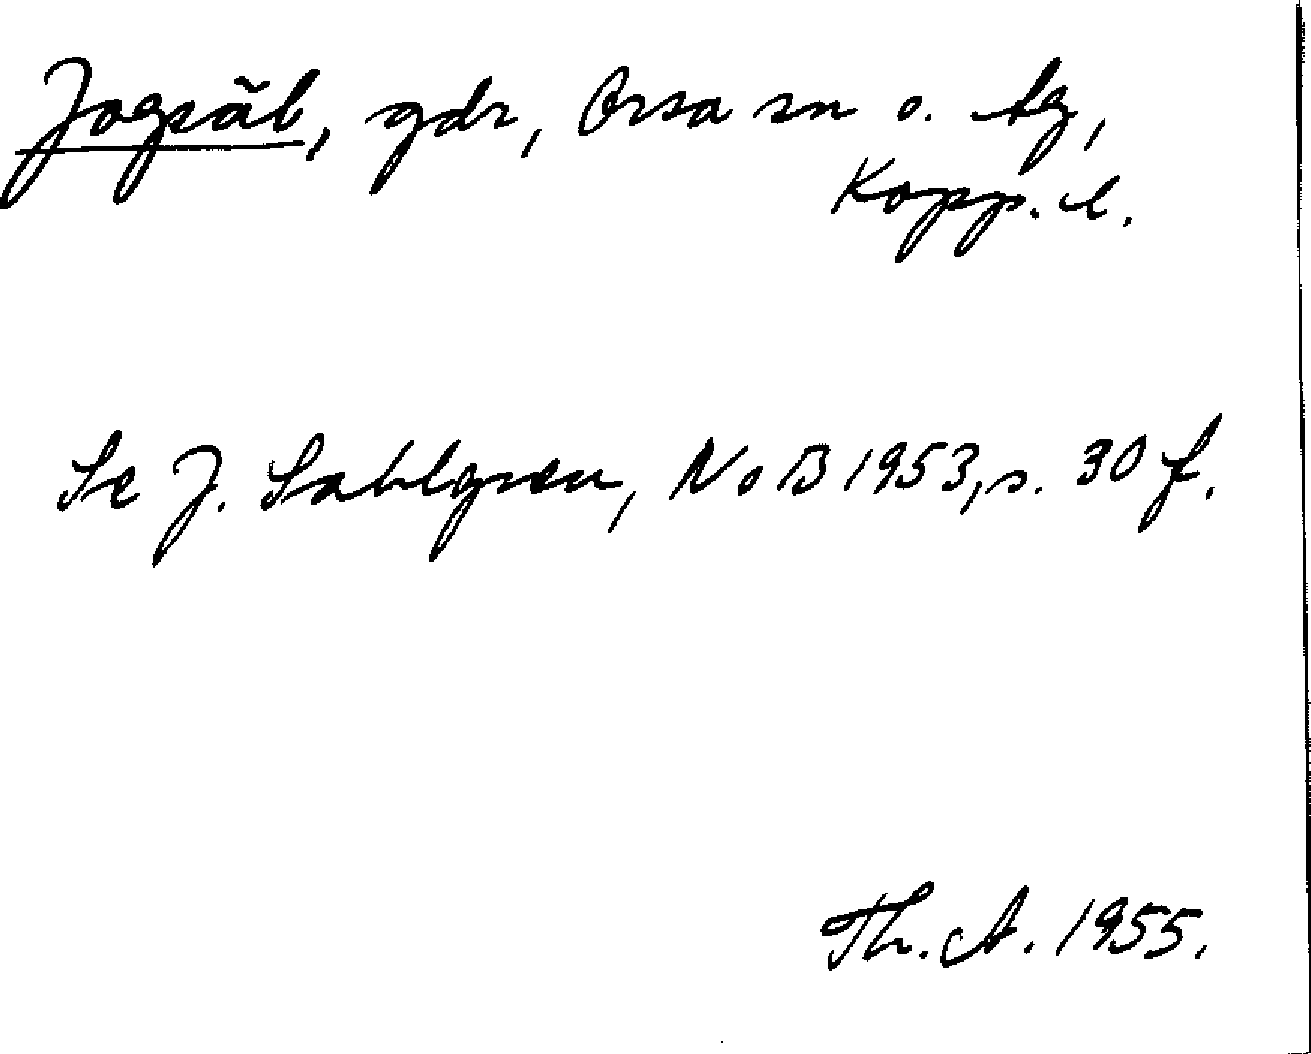 Jogsäl, gdr, Orsa sn o. tg,
Kopp. l.
Se J. Sahlgren, NoB 1953, s. 30 f.
Th. A. 1955.